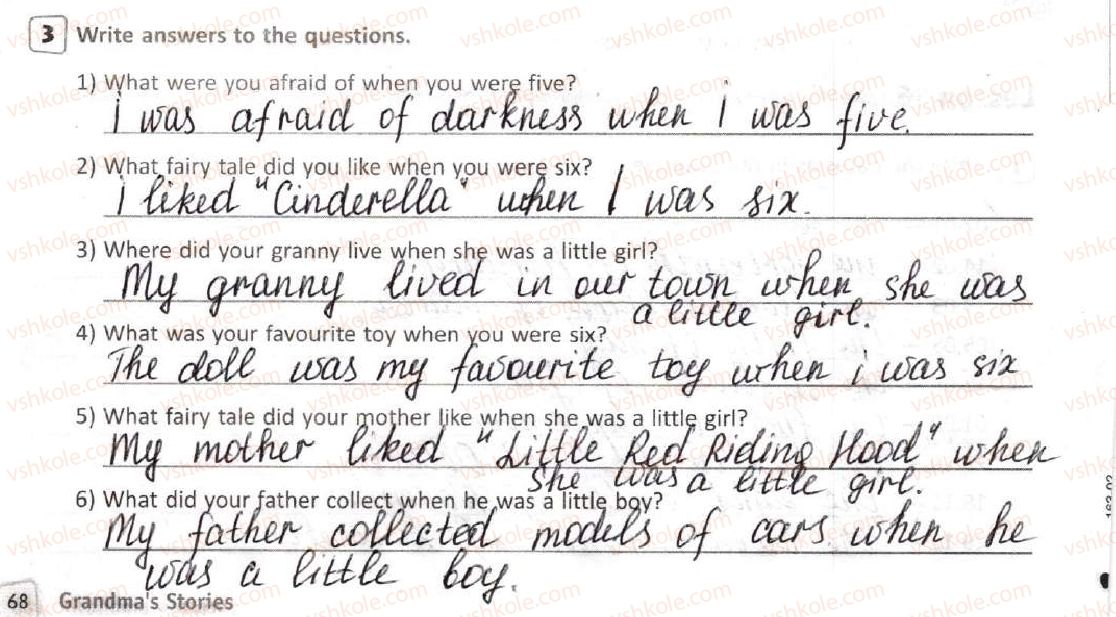 3 Write answers to the questions.
1) What were you afraid of when you were five?
i was afraid of darkness when i was five.
2) What fairy tale did you like when you were six?
i liked "Cinderella" when I was six.
3) Where did your granny live when she was a little girl?
My granny lived in our town when she was
a little girl.
4) What was your favourite toy when you were six?
The doll was my favourite toy when i was six
5) What fairy tale did your mother like when she was a little girl?
My mother liked "Little Red Riding Hood" when
she was a little girl.
6) What did your father collect when he was a little boy?
My father collected models of cars when he
was a little boy.
68 Grandma's Stories